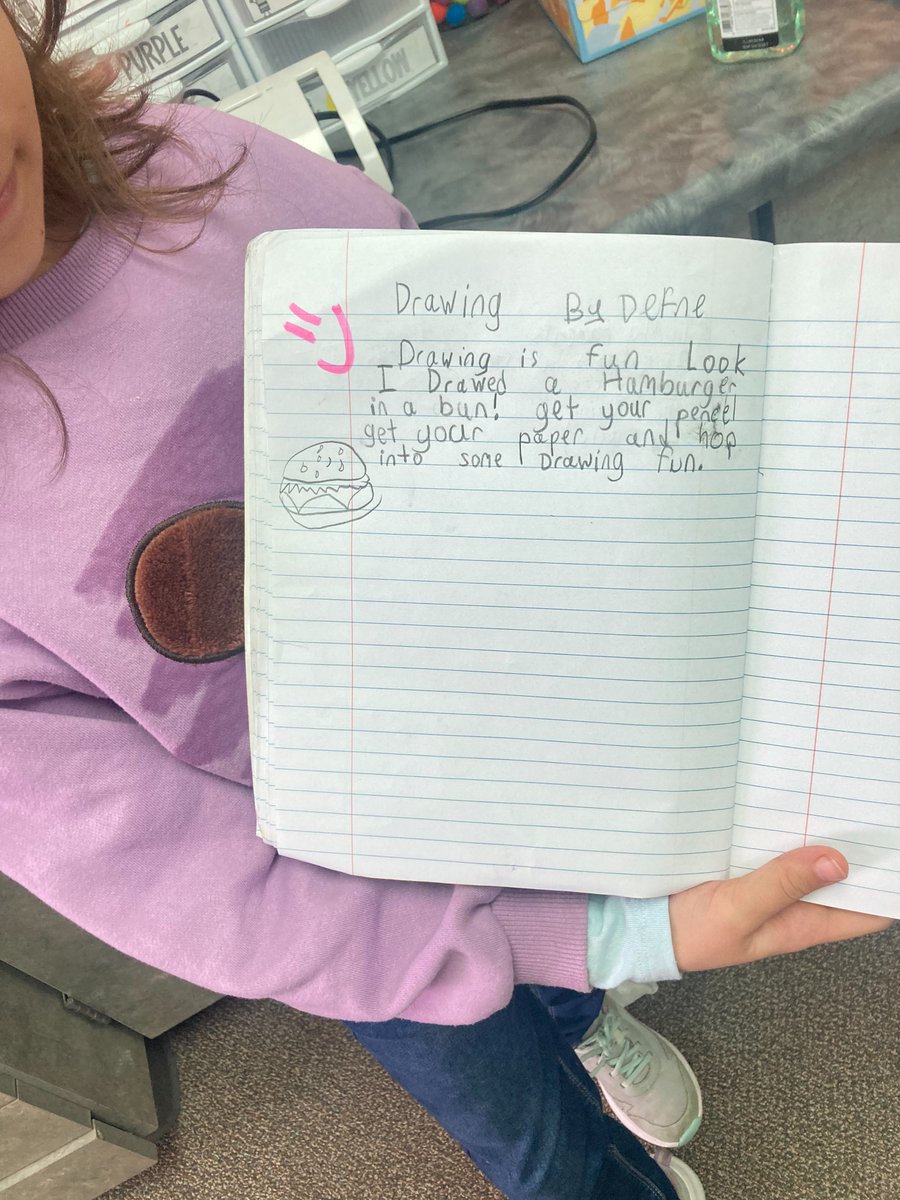 PURPLE
YELLOW
Drawing By Defne
Drawing is fun Look
I Drawed a Hamburger
in a bun! get your pencil
get your paper and hop
into some Drawing fun.